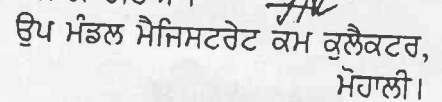 ਉਪ ਮੰਡਲ ਮੈਜਿਸਟਰੇਟ ਕਮ ਕੁਲੈਕਟਰ,
ਮੋਹਾਲੀ।